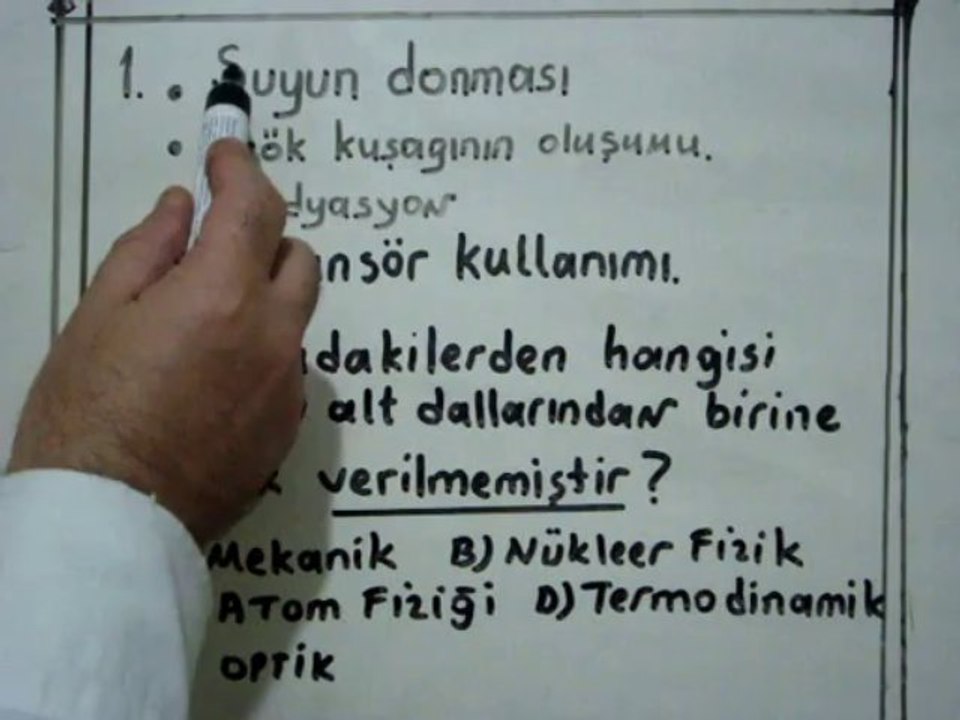 1. • Suyun donması
• kuşagının oluşumu.
kullanımı.
hangisi
alt dallarından birine
verilmemiştir?
Mekanik B) Nükleer Fizik
Atom Fiziği D) Termodinamik
optik